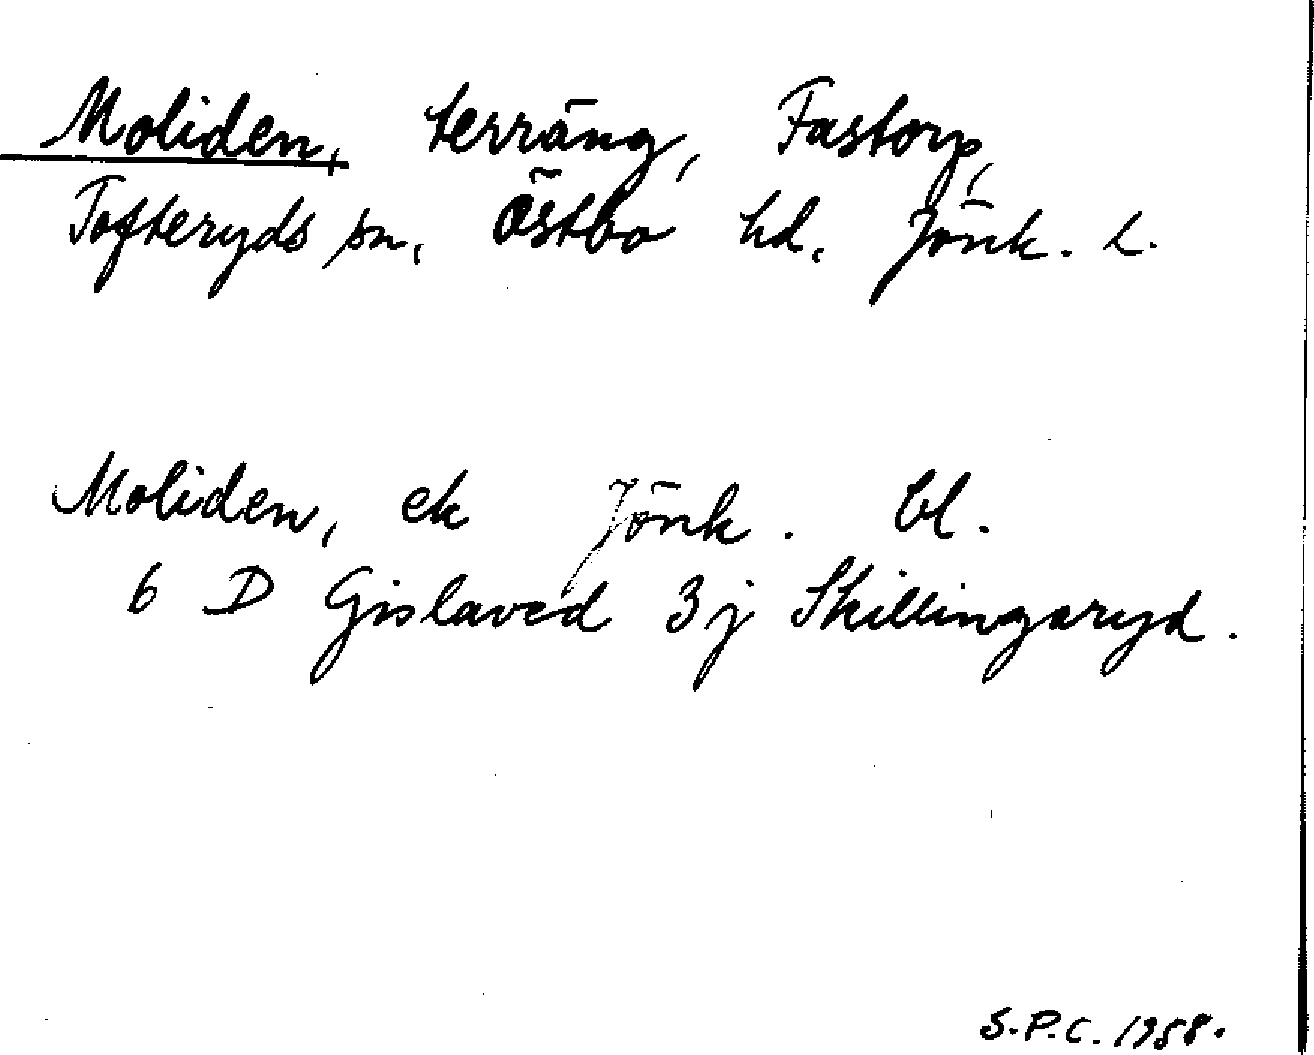 Moliden, terräng, Fastorp,
Tofteryds sn. Östbo hd. Jönk. L.
Moliden, ek Jönk. bl.
6 D Gislaved 3j Skillingaryd.
S.P.C. 1988.